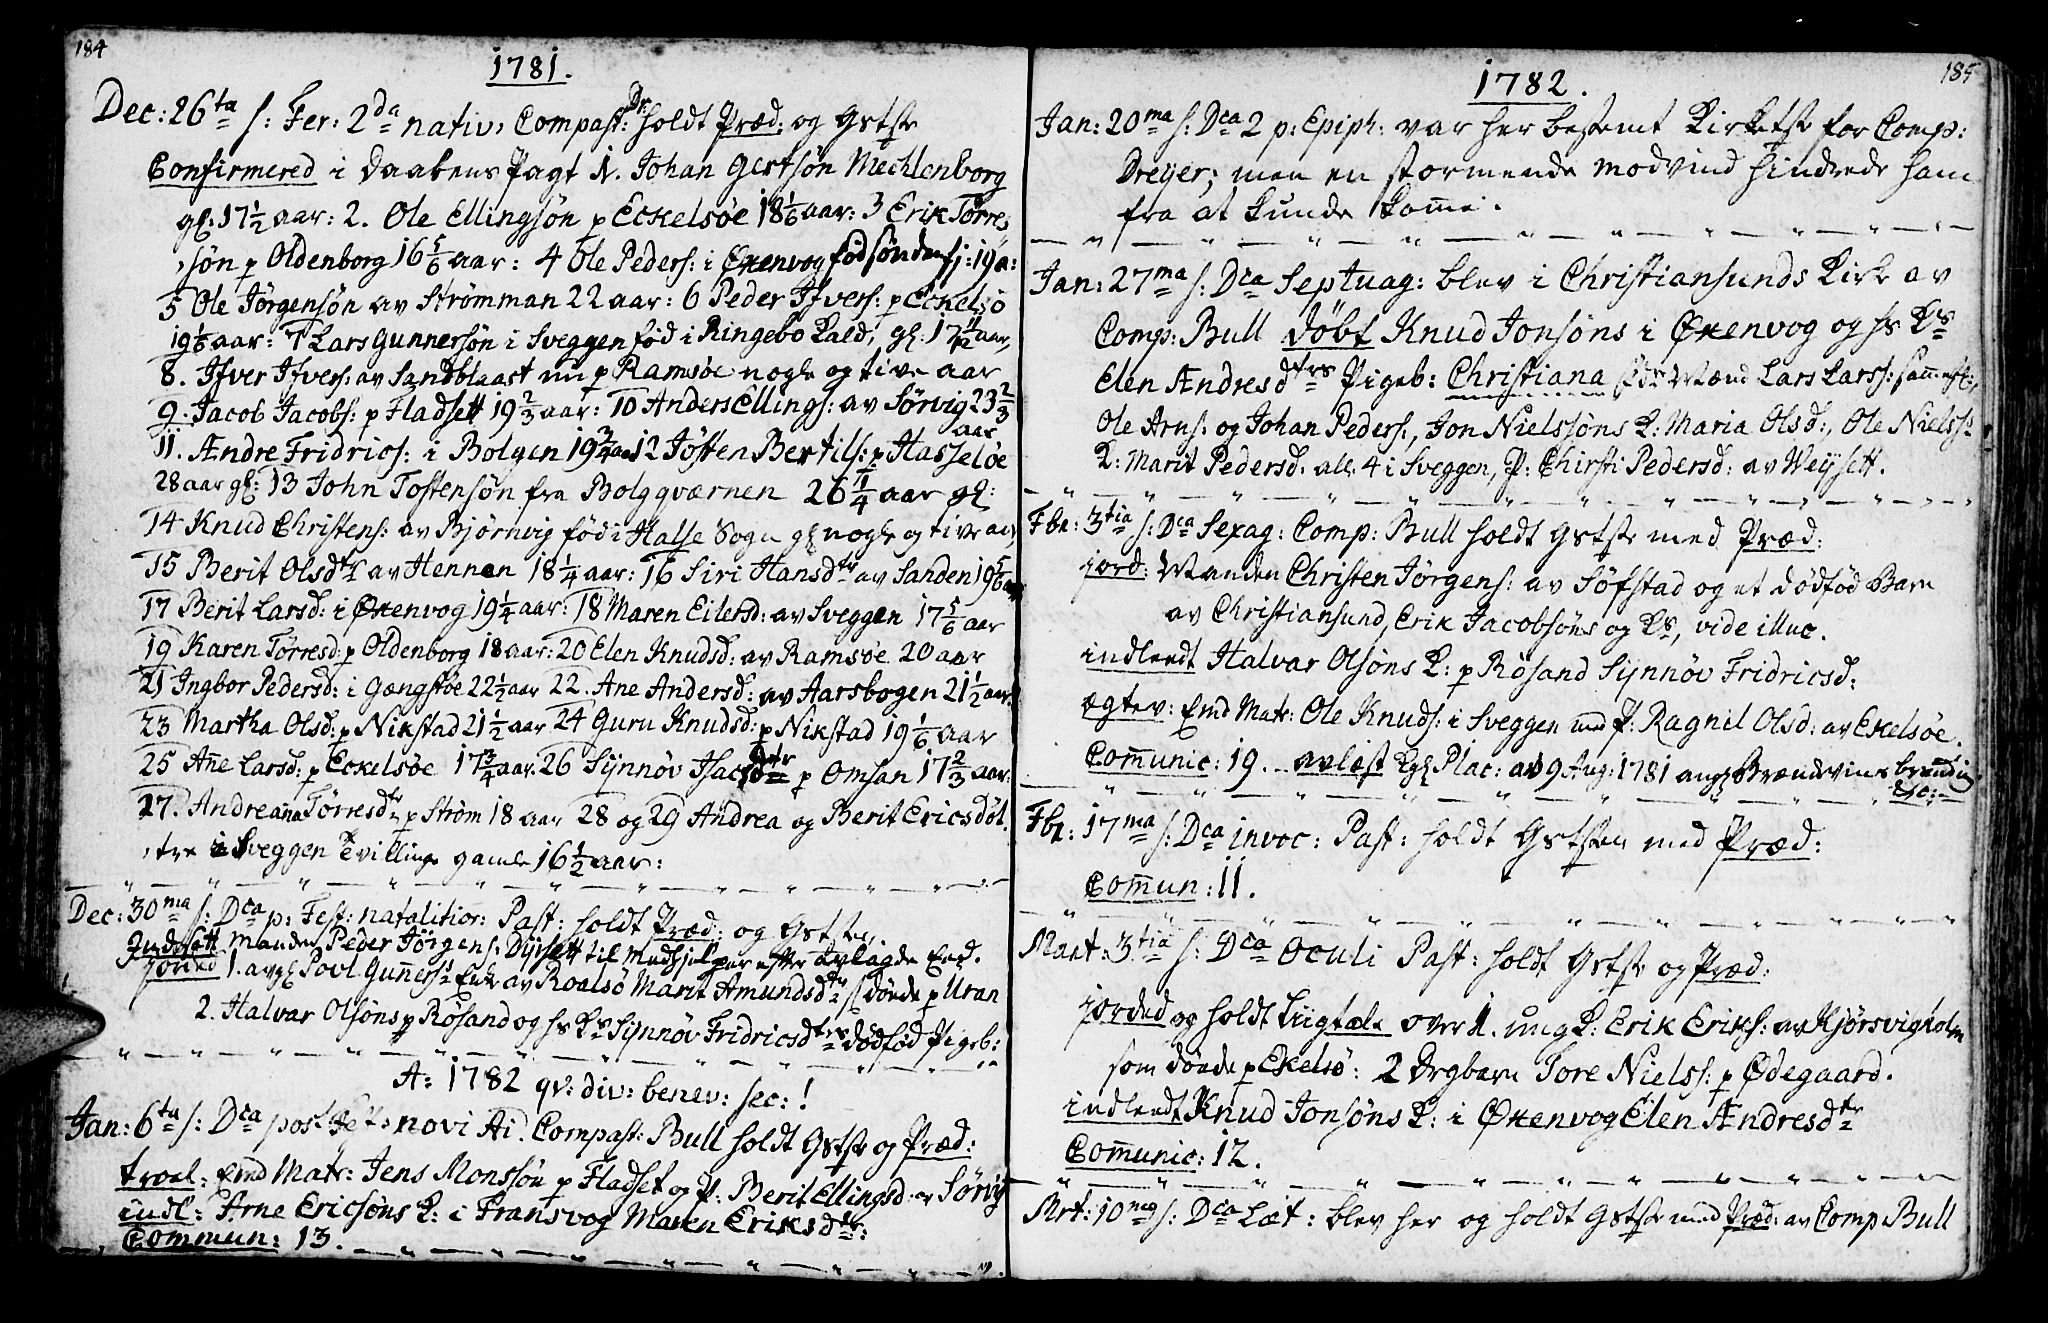 184
1781.
Dec: 26ta s: Fer: 2da nativ: Compast: Dr: holdt Præd: og Gstste
Confirmered i Daabens Pagt 1. Johan Gertsøn Mechlenborg
gl: 17½ aar: 2. Ole Ellingsøn p Eckelsøe 18⅙ aar: 3 Erik Torres
søn p Oldenborg 16⅚ aar: 4 Ole Peders: i Øxenvog fød sønden fj: 19 a:
5 Ole Jörgensøn av Strömman 22 aar: 6 Peder Ifvers: p Eckelsö
19⅙ aar: 7 Lars Gunnersøn i Sveggen fød i Ringebo Kald, gl: 17½ aar,
8. Ifver Ifvers: av Sandblaast nu p Ramsøe nogle og tive aar
9. Jacob Jacobs: p Fladsett 19⅔ aar: 10 Anders Ellings: av Sørvig 23⅔
aar
11. Andre Fridrics: i Bolgen 19¾ aar 12 Jösten Bertils: p Hasseløe
28 aar gl: 13 John Tostensøn fra Bolgqværnen 26¼ aar gl:
14 Knud Christens: av Bjørnvig fød i Halse Sogn gl nogle og tive aar
15 Berit Olsdtr av Hennen 18¼ aar: 16 Siri Hansdtr av Sanden 19⅚ aar
17 Berit Larsd: i Øxenvog 19¼ aar: 18 Maren Eilersd: av Sveggen 17⅚ aar
19 Karen Torresd: p Oldenborg 18 aar: 20 Elen Knudsd: av Ramsøe 20 aar
21 Ingbor Pedersd: i Gængstøe 22½ aar 22. Ane Andersd: av Aarsbogen 21½ aar.
23 Martha Olsd: p Nikstad 21½ aar 24 Guru Knudsd: p Nikstad 19⅙ aar
25 Añe Larsd: p Eckelsøe 17¾ aar. 26 Synnøv Isacsdtr p Omsan 17⅔ aar:
27. Andreana Törresdtr p Ström 18 aar 28 og 29 Andrea og Berit Ericsdöt
tre i Sveggen tvillinge gamle 16½ aar:
Dec: 30ma s: Dca p: Fest: natalitior: Past: holdt Præd: og Gstste,
Indsett Manden Peder Jörgens: Dyrsett til Medhjelper efter avlagde Eed.
jorded 1. avgl Povl Guñers: Enke av Roalsö Marit Amundsdtr døde p Uran
2. Halvar Olsöns p Røsand og hs Ks Synnöv Fridricsdtrs dødfød Pigeb:
A: 1782 qv: div: benev: sec: !
Jan: 6ta s: Dca post Fest: novi Ai. Compast: Bull holdt Gstste og Præd:
trol: Emd Matr: Jens Monssön p Fladset og P: Berit Ellingsd: av Sørvig
indl: Arne Ericsöns K: i Fransvog Maren Eriksdtr:
Commun: 13.
185
1782.
Jan: 20ma s: Dca 2 p: Epiph: var her bestemt Kirketste for Comp:
Dreyer; men en stormende Modvind hindrede ham
fra at kunde kom̃e.
Jan: 27ma s: Dca Septuag: blev i Christiansunds Kirke av
Comp: Bull døbt Knud Jonsøns i Øxenvog og hs Ks
Elen Andresdtrs Pigeb: Christiana Fdr Mænd Lars Larss: sam̃est:,
Ole Arns: og Johan Peders:, Jon Nielssöns K: Maria Olsd:, Ole Nielss:
K: Marit Pedersd: alle 4 i Sveggen, P: Chirsti Pedersd: av Weysett.
Fbr: 3tia s: Dca Sexag: Comp: Bull holdt Gstste med Præd:
jord: Manden Christen Jörgens: av Söfstad og et dødfød Barn
av Christiansund, Erik Jacobsöns og Ks, vide illuc.
indleedt Halvar Olsöns K: p Rösand Synnöv Fridricsd:
ægtev: Emd Matr: Ole Knuds: i Sveggen med P: Ragnil Olsd: av Ekelsøe.
Com̃unic: 19. avlæst Kgl Plac: av 9 Aug: 1781 angl Brændevins brænding
etc:
Fbr: 17ma s: Dca invoc: Past: holdt Gststen med Præd:
Com̃un: 11.
Mart: 3tia s: Dca Oculi Past: holdt Gstste og Præd:
jorded og holdt Liigtale over 1. ung K: Erik Eriks: av Kjörsvigholm
som døde p Ekelsö: 2 Drgbarn Tore Niels: p Ødegaard.
indleedt Knud Jonsöns K: i Øxenvog Elen Andresdtr
Com̃unic: 12.
Mrt: 10ma s: Dca Læt: blev her og holdt Gstste med Præd: av Comp Bull